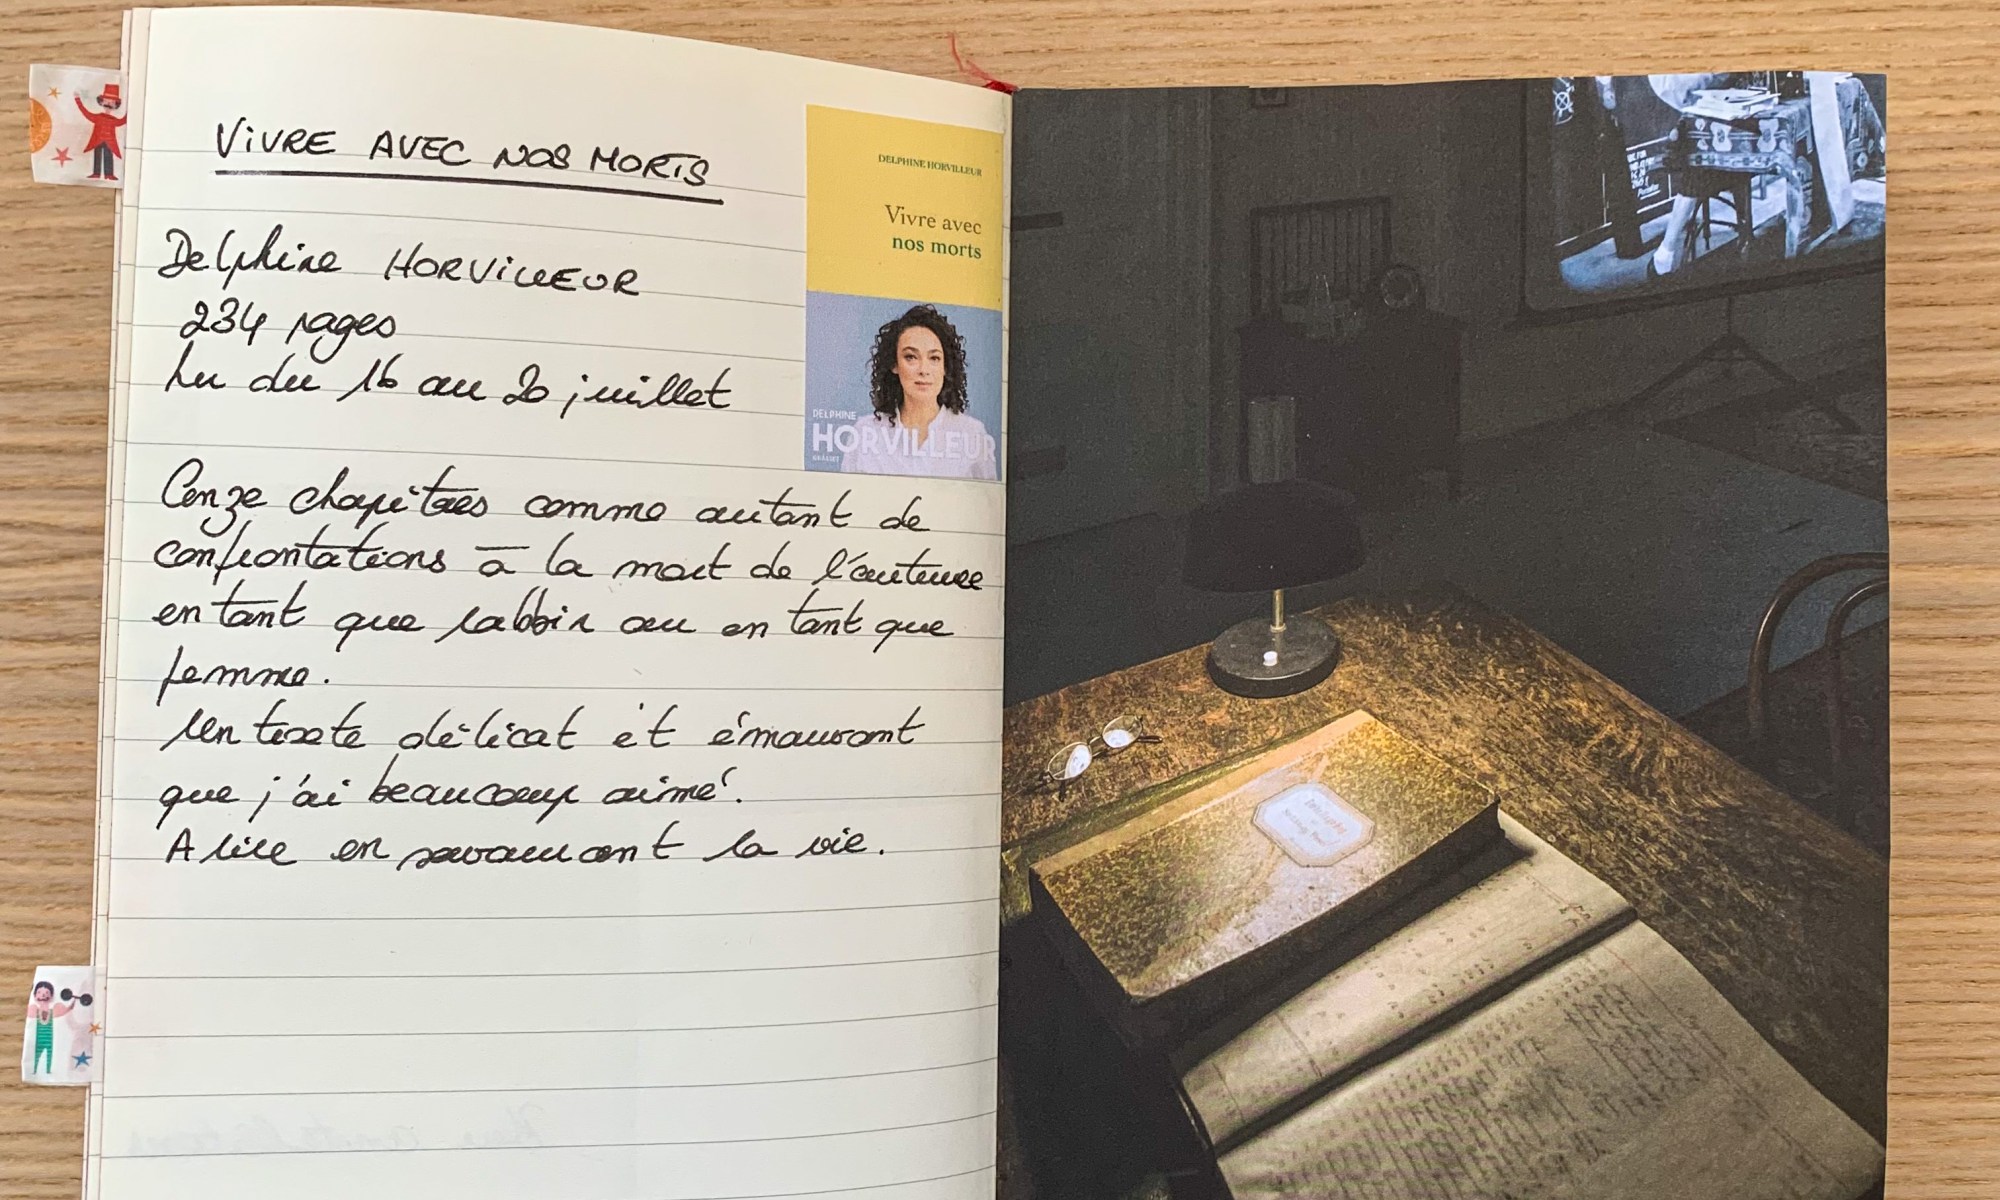 VIVRE AVEC NOS MORTS
Delphine HORVILLEUR
234 pages
Lu du 16 au 20 juillet
Onze chapitres comme autant de
confrontations à la mort de l'auteure
en tant que rabbin ou en tant que
femme.
Un texte délicat et émouvant
que j'ai beaucoup aimé.
A lire en savourant la vie.
DELPHINE HORVILLEUR
Vivre avec
nos morts
DELPHINE
HORVILLEUR
GRASSET